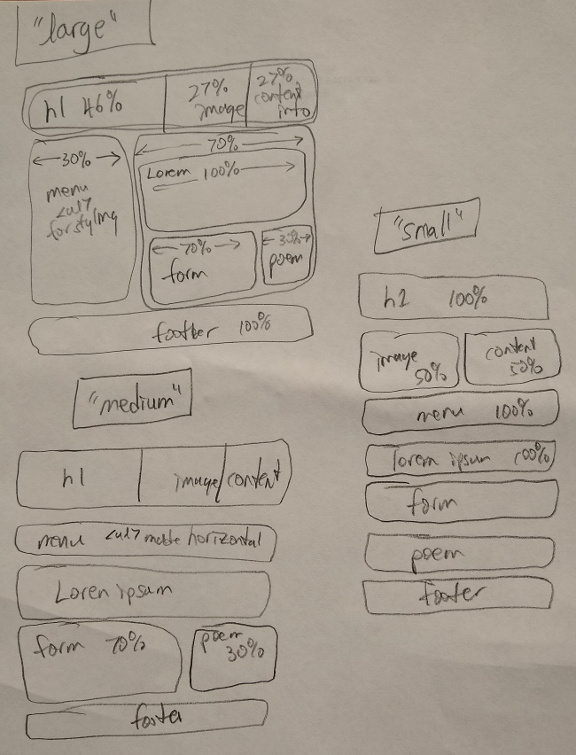 "large"
h1 46%
27%
image
27%
content
info
30%
menu
<ul>
for styling
70%
Lorem 100%
70%
form
30%
poem
footer 100%
"medium"
h1
image/content
menu <ul> made horizontal
Loren ipsum
form 70%
poem
30%
footer
"small"
h1 100%
image
50%
content
50%
menu 100%
lorem ipsum 100%
form
poem
footer